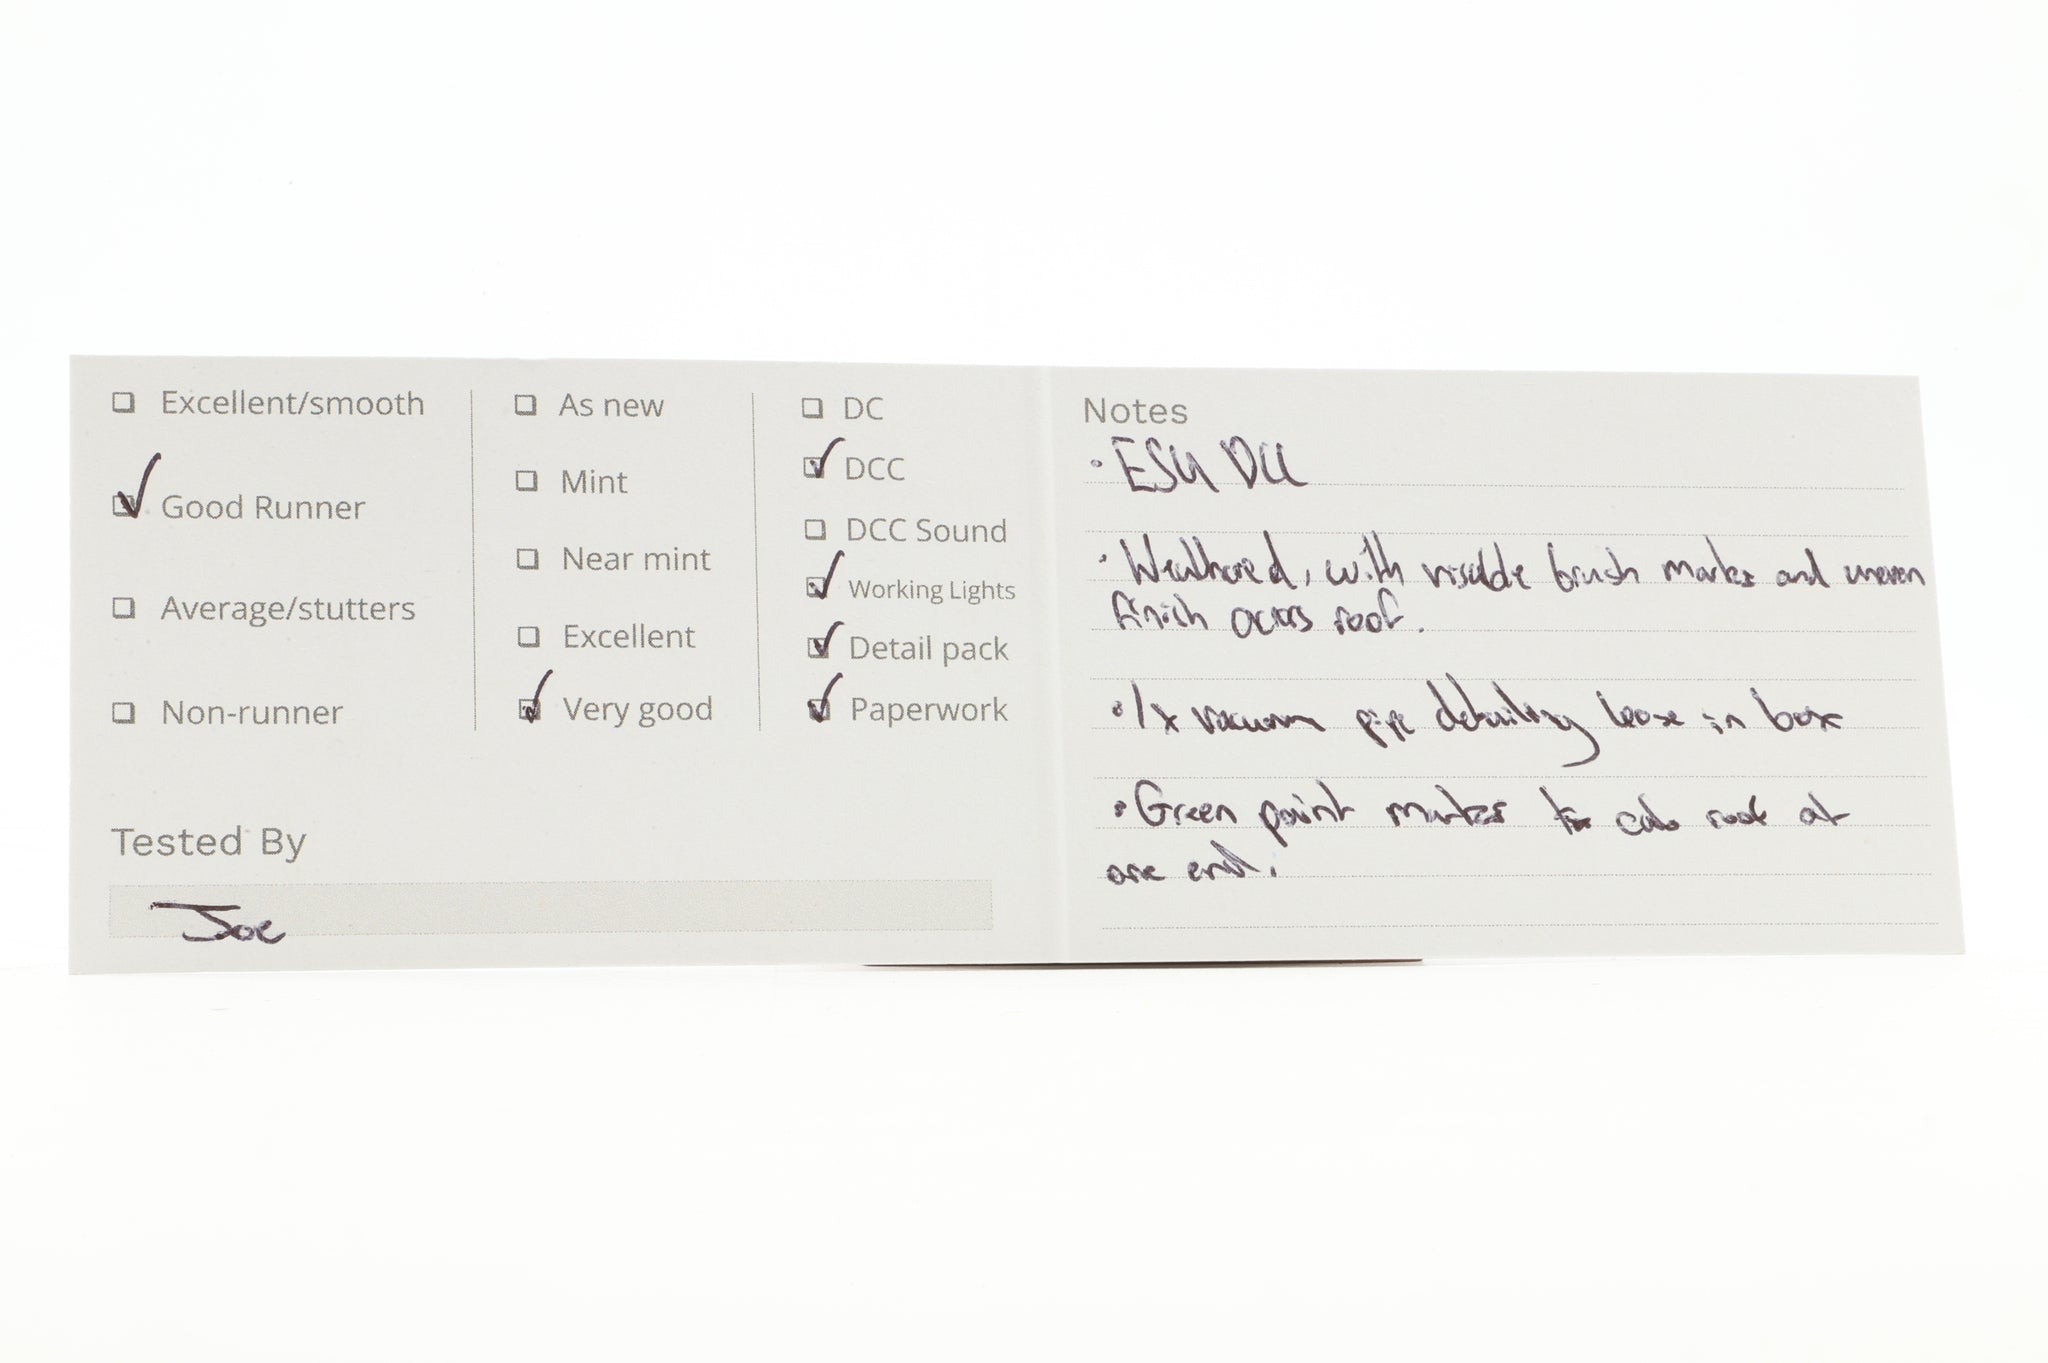 Excellent/smooth
Good Runner
Average/stutters
Non-runner
As new
Mint
Near mint
Excellent
Very good
DC
DCC
DCC Sound
Working Lights
Detail pack
Paperwork
Tested By
Joe
Notes
• ESU DCC
• Weathered, with visible brush marks and uneven
finish across roof.
• 1x vacuum pipe detailing loose in box
• Green paint marks to cab roof at
one end.